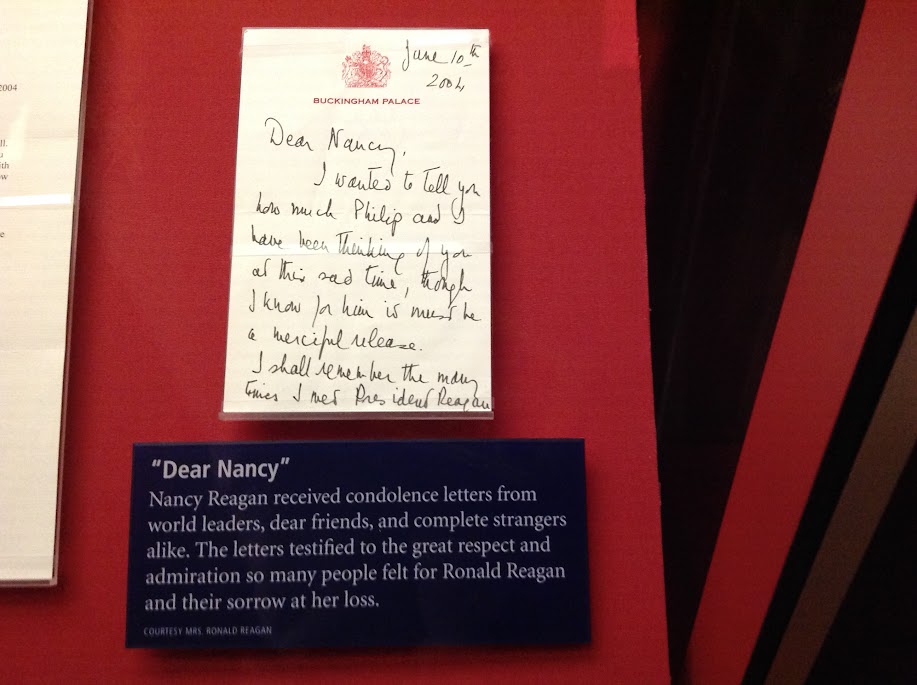 2004
ll.
u
ith
ow
e
June 10th
2004
BUCKINGHAM PALACE
Dear Nancy,
I wanted to tell you
how much Philip and I
have been thinking of you
at this sad time, though
I know for him is must be
a merciful release.
I shall remember the many
times I met President Reagan
"Dear Nancy"
Nancy Reagan received condolence letters from
world leaders, dear friends, and complete strangers
alike. The letters testified to the great respect and
admiration so many people felt for Ronald Reagan
and their sorrow at her loss.
COURTESY MRS. RONALD REAGAN